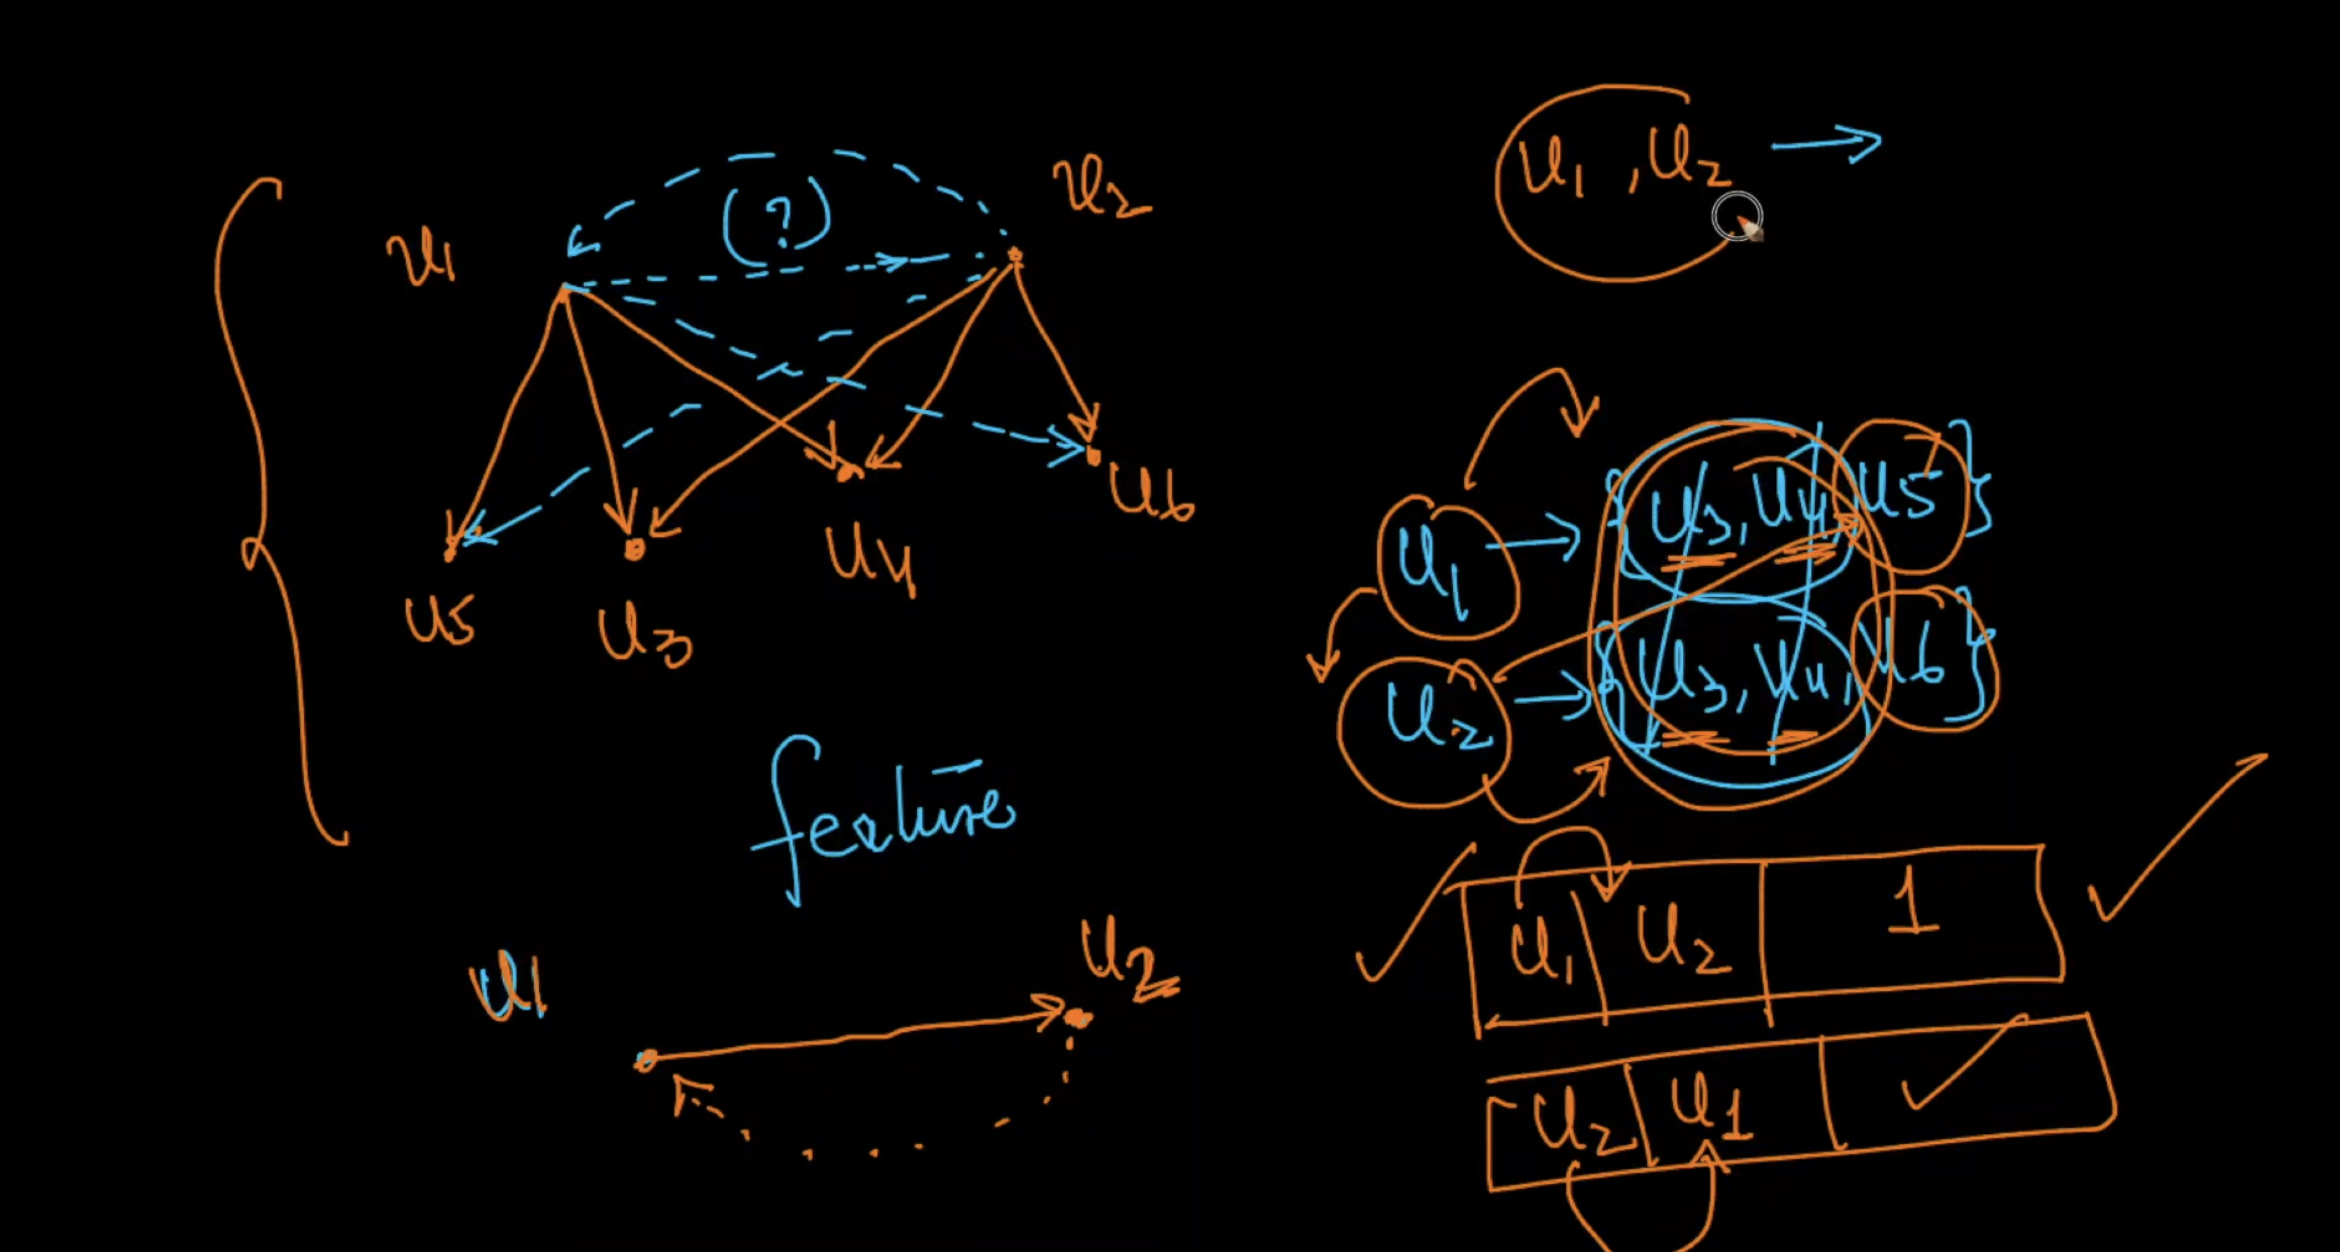 u1
(?)
u2
u5
u3
u4
u6
feature
u1
u2
u1, u2 →
u1 → {u3, u4, u5}
u2 → {u3, u4, u6}
u1 | u2 | 1
u2 | u1 | ✓